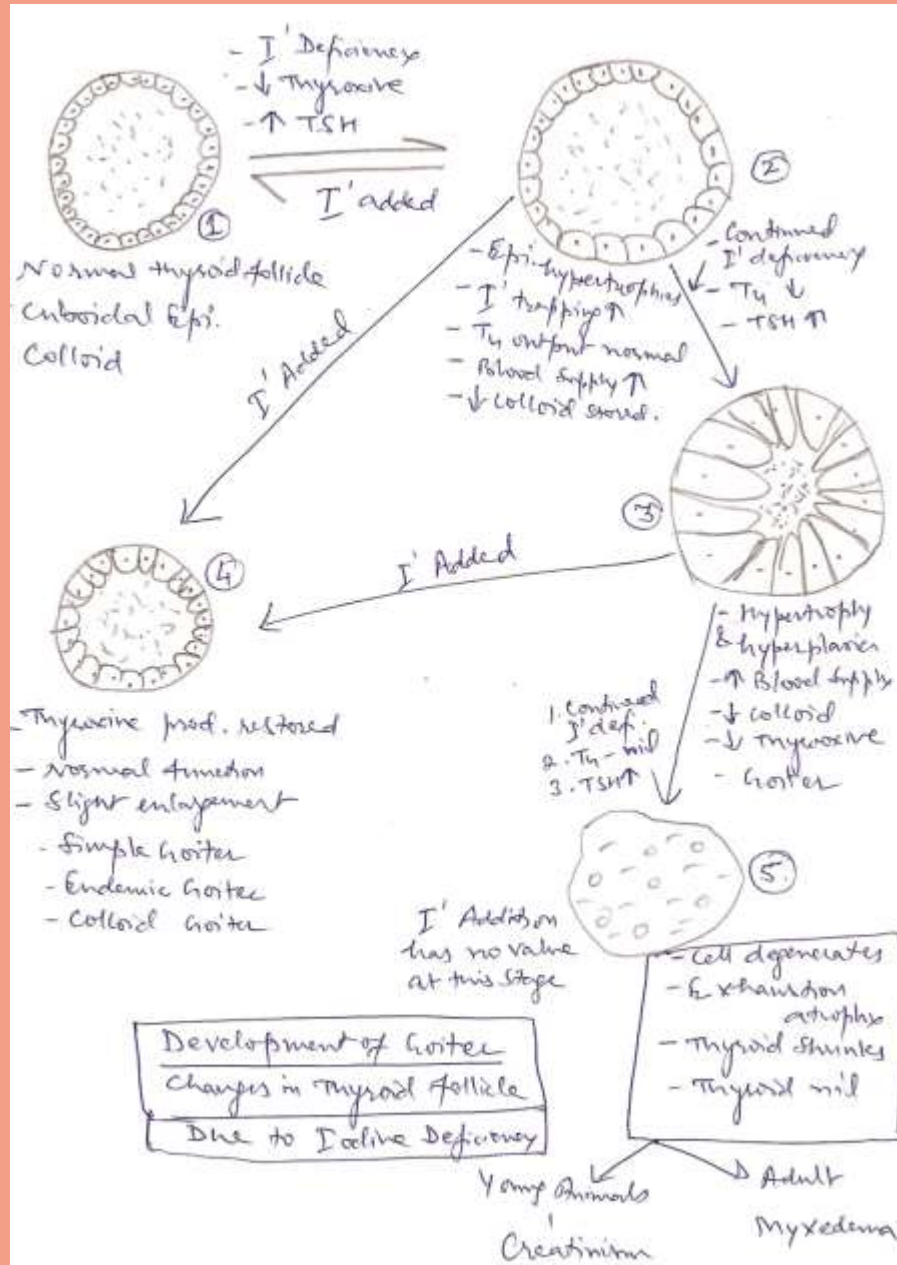 - I' Deficiency
- ↓ Thyroxive
- ↑ TSH
I' added
①
Normal thyroid follicle
Cuboidal Epi.
Colloid
②
- Epi. hypertrophies
- I' trapping ↑
- T4 output normal
- Blood supply ↑
- ↓ Colloid stored.
- Continued
I' deficiency
- T4 ↓
- TSH ↑
I' Added
③
I' Added
④
- Thyroxine prod. restored
- Normal function
- Slight enlargement
- Simple Goiter
- Endemic Goiter
- Colloid Goiter
- Hypertrophy
& hyperplasia
- ↑ Blood supply
- ↓ Colloid
- ↓ Thyroxive
- Goiter
1. Continued
I' def.
2. T4 - nil
3. TSH ↑
⑤
I' Addition
has no value
at this stage
- Cell degenerates
- Exhaustion
atrophy
- Thyroid Shrinks
- Thyroid nil
Development of Goiter
Changes in Thyroid follicle
Due to Iodine Deficiency
Young Animals
Creatinism
Adult
Myxedema